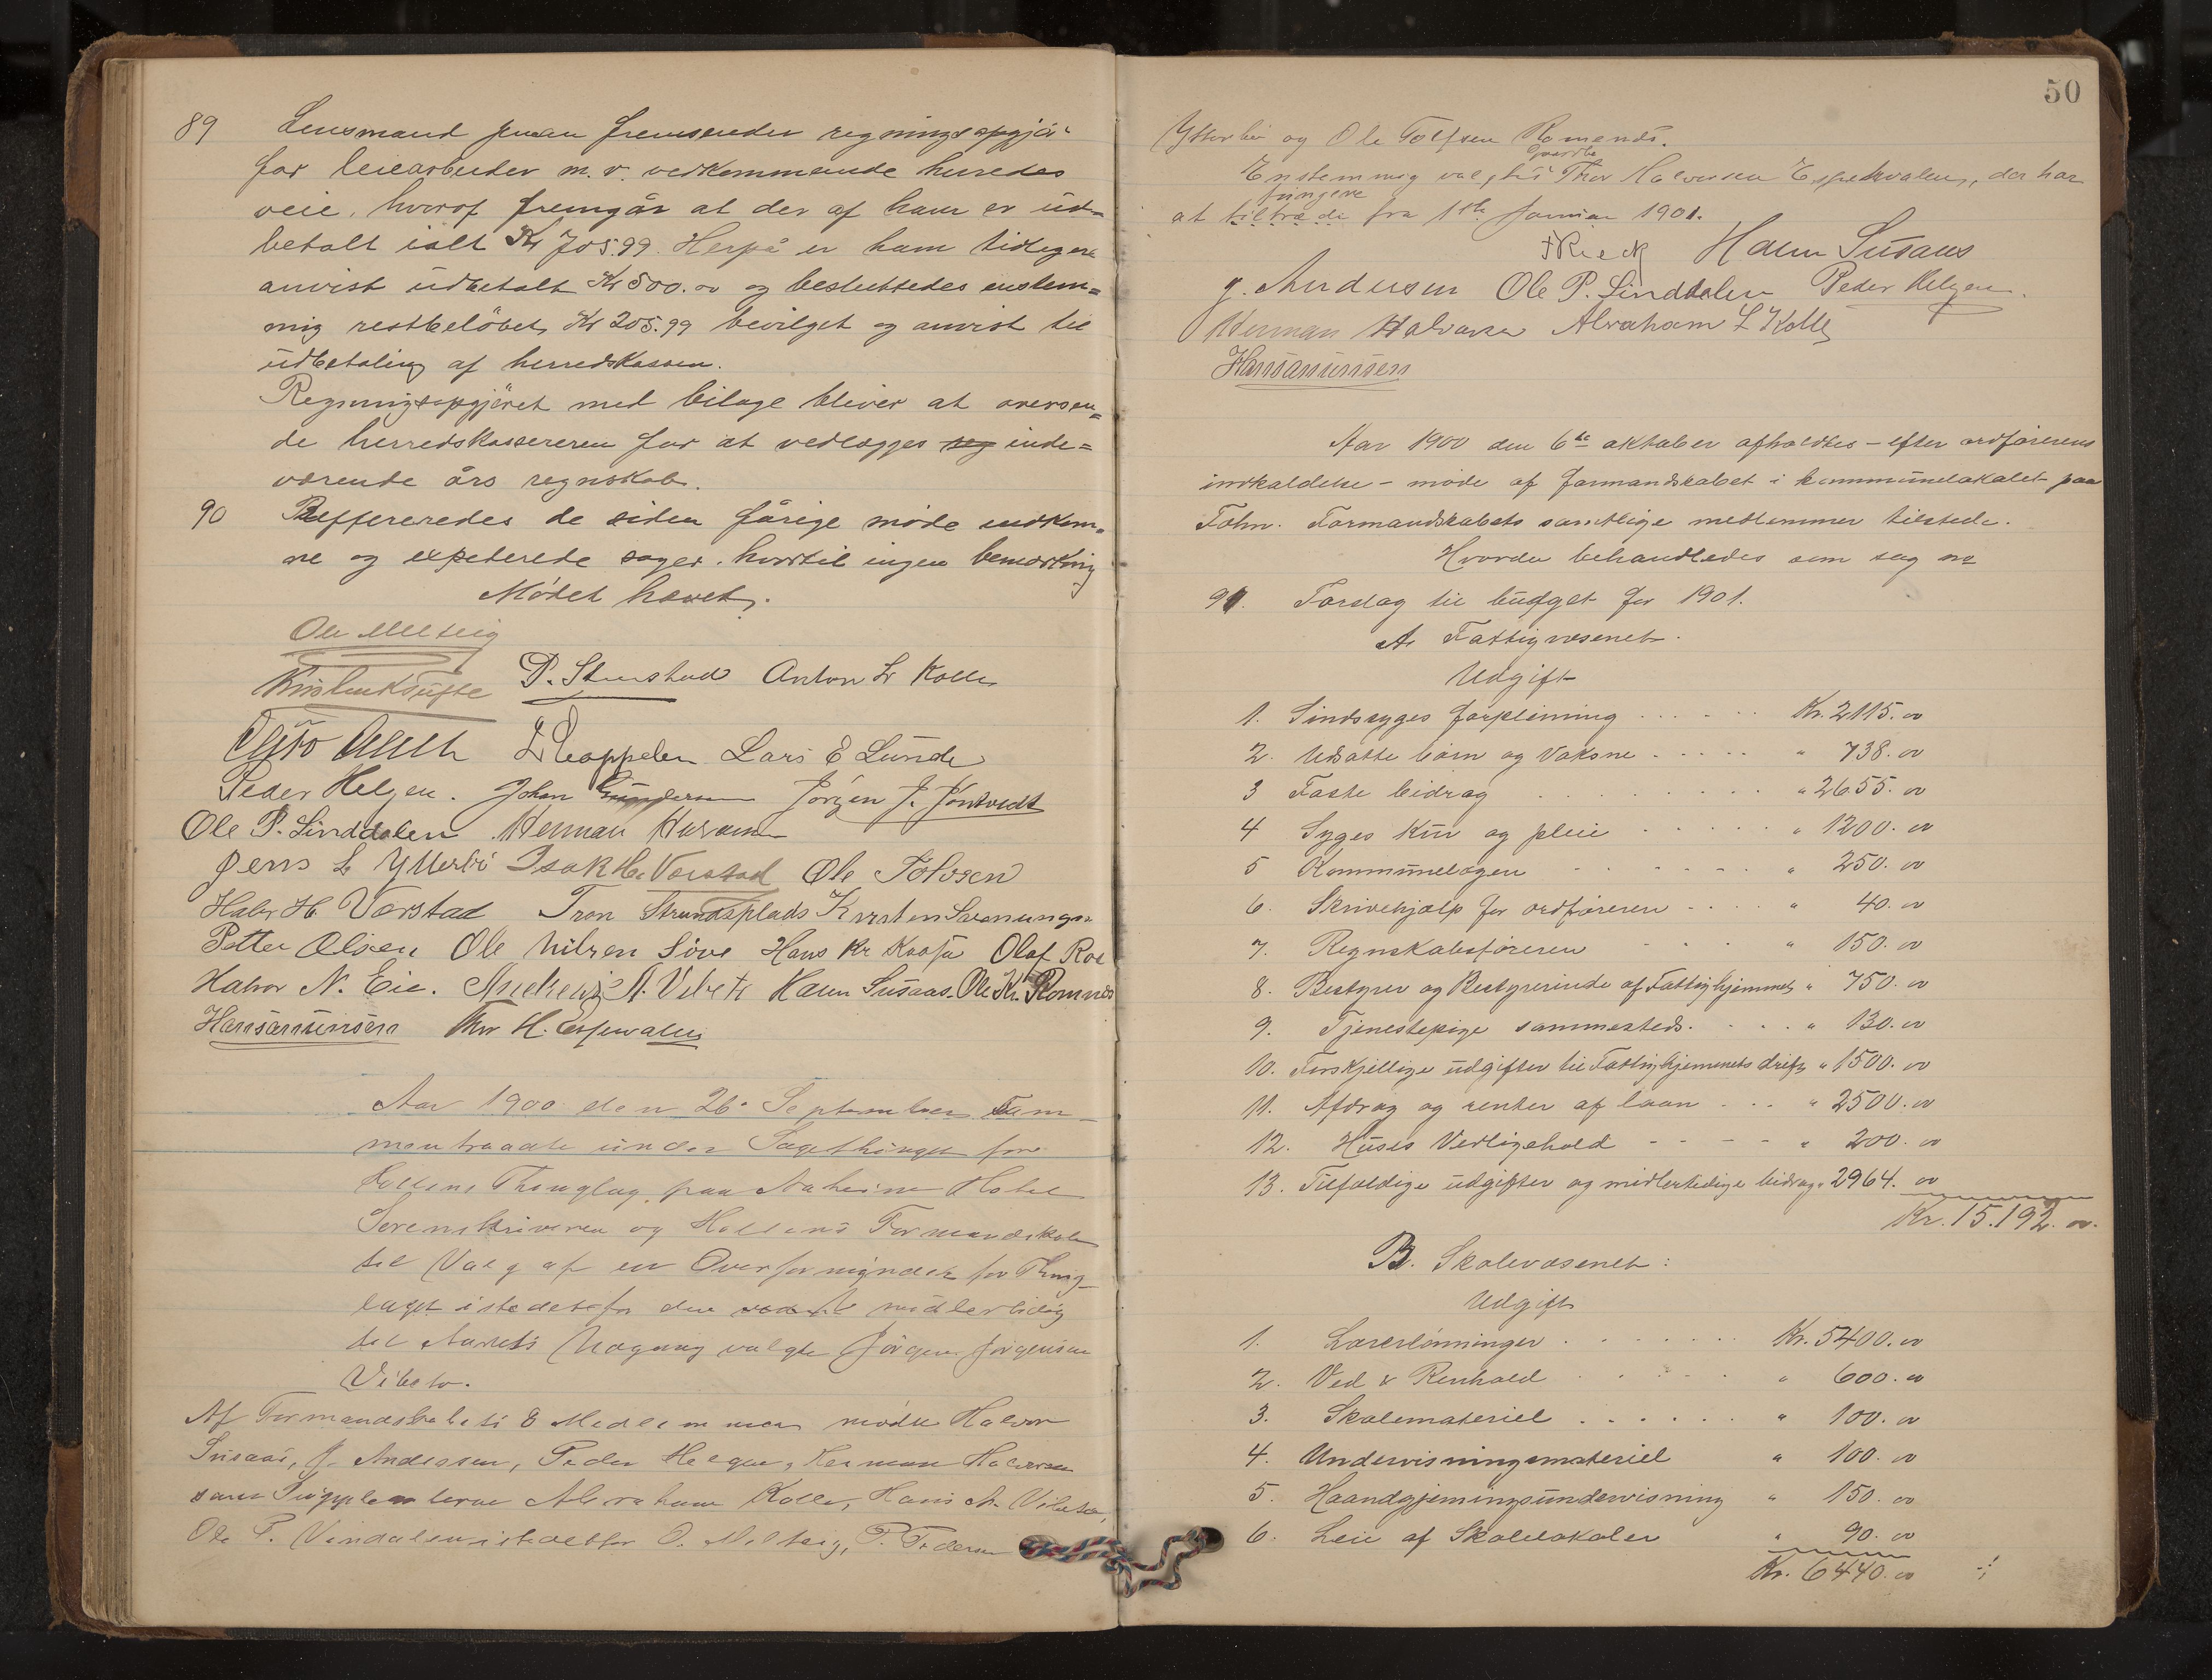 89 Lensmand fremsender regningsopgjör
for veiearbeider m. v. vedkommende herredes
veie, hvoraf fremgår at der af ham er ud=
betalt ialt Kr 705.99. Herpå er ham tidligere
anvist udbetalt Kr 500.00 og besluttedes enstem=
mig restbelöbet Kr 205.99 bevilget og anvist til
udbetaling af herredskassen.
Regningsopgjöret med bilage bliver at oversen=
de herredskassereren for at vedlægges seg inde=
værende års regnskab.
90 Reffereredes de siden forrige möde indkom=
ne og expederede sager, hvortil ingen bemærkning
Mödet hævet.
Ole Melteig
P. Stenstad Anton L Kolle
Kloppelen Lars E Lunde
Peder Helgen. Johan Gundersen Jörgen J. Jöntvedt
Ole P. Linddalen Herman Halvorsen
Jens L Ytterbö Isak H. Værstad Ole Tolvsen
Halv. H. Værstad Tron Strandsplads Karsten
Petter Olsen Ole Nilsen Söve Hans Kr Olaf Roe
Halvor N. Eie. Andreas A. Vibeto Halvor Susaas. Ole Kr. Romnes
Hans Amunsen Thor H. Espevalen
Aar 1900 den 26. September Sam
mentraadte under Sagethinget for
Hollens Thinglag, paa Aaheim Hotel
Sorenskriveren og Hollens Formandskab
til Valg af en Overformynder for Thing
laget istedetfor den midlertidig
til Aarets Udgang valgte Jörgen Jörgensen
Vibeto.
Af Formandskabets 8 Medlemmer mödte Halvor
Susaas, J. Andersen, Peder Helgen, Herman Halvorsen
samt Suppleanterne Abraham Kolle, Hans A. Vibeto,
Ole P. Lindalen istedetfor O. Melteig, P. Pedersen
50
Ytterbö og Ole Tolfsen Romenæs.
Enstemmig valgtes Thor Halvorsen Espekvalen, der har
fungere
at tiltræde fra 1ste Januar 1901.
Rieck Halvor Susaas
J. Andersen Ole P. Linddalen Peder Helgen.
Herman Halvorsen Abraham L Kolle
Hans Amunsen
Aar 1900 den 6te oktober afholdtes – efter ordförerens
indkaldelse – möde af formandskabet i kommunelokalet paa
Tohn. Formandskabets samtlige medlemmer tilstede.
Hvorda behandledes som sag no
91. Forslag til budget for 1901.
A. Fattigvæsenet.
Udgift
1. Sindssyges forpleining . . . . . . Kr. 2115.00
2. Udsatte börn og Voksne . . . . . " 738.00
3 Faste bidrag . . . . . . . . " 2655.00
4 Syges Kur og pleie . . . . . " 1200.00
5 Kommunelægen . . . . . . " 250.00
6. Skrivehjælp for ordföreren . . . . " 40.00
7. Regnskabsföreren . . . " 150.00
8. Bestyrer og Bestyrerinde af Fattighjemmet " 750.00
9. Tjenestepige sammesteds. . . . " 130.00
10. Forskjellige udgifter til Fattighjemmets drift " 1500.00
11. Afdrag og renter af laan . . . " 2500.00
12. Huses Vedligehold - - - - " 200.00
13. Tilfældige udgifter og midlertidige bidrag " 2964.00
Kr. 15.192.00.
B. Skolevæsenet:
Udgift
1. Lærerlönninger . . . . . . . Kr. 5400.00
2. Ved & Renhold . . . . . " 600.00
3. Skolemateriel . . . . . . " 100.00
4. Undervisningsmateriel " 100.00
5. Haandgjerningsundervisning " 150.00
6. Leie af Skolelokaler " 90.00
Kr. 6440.00